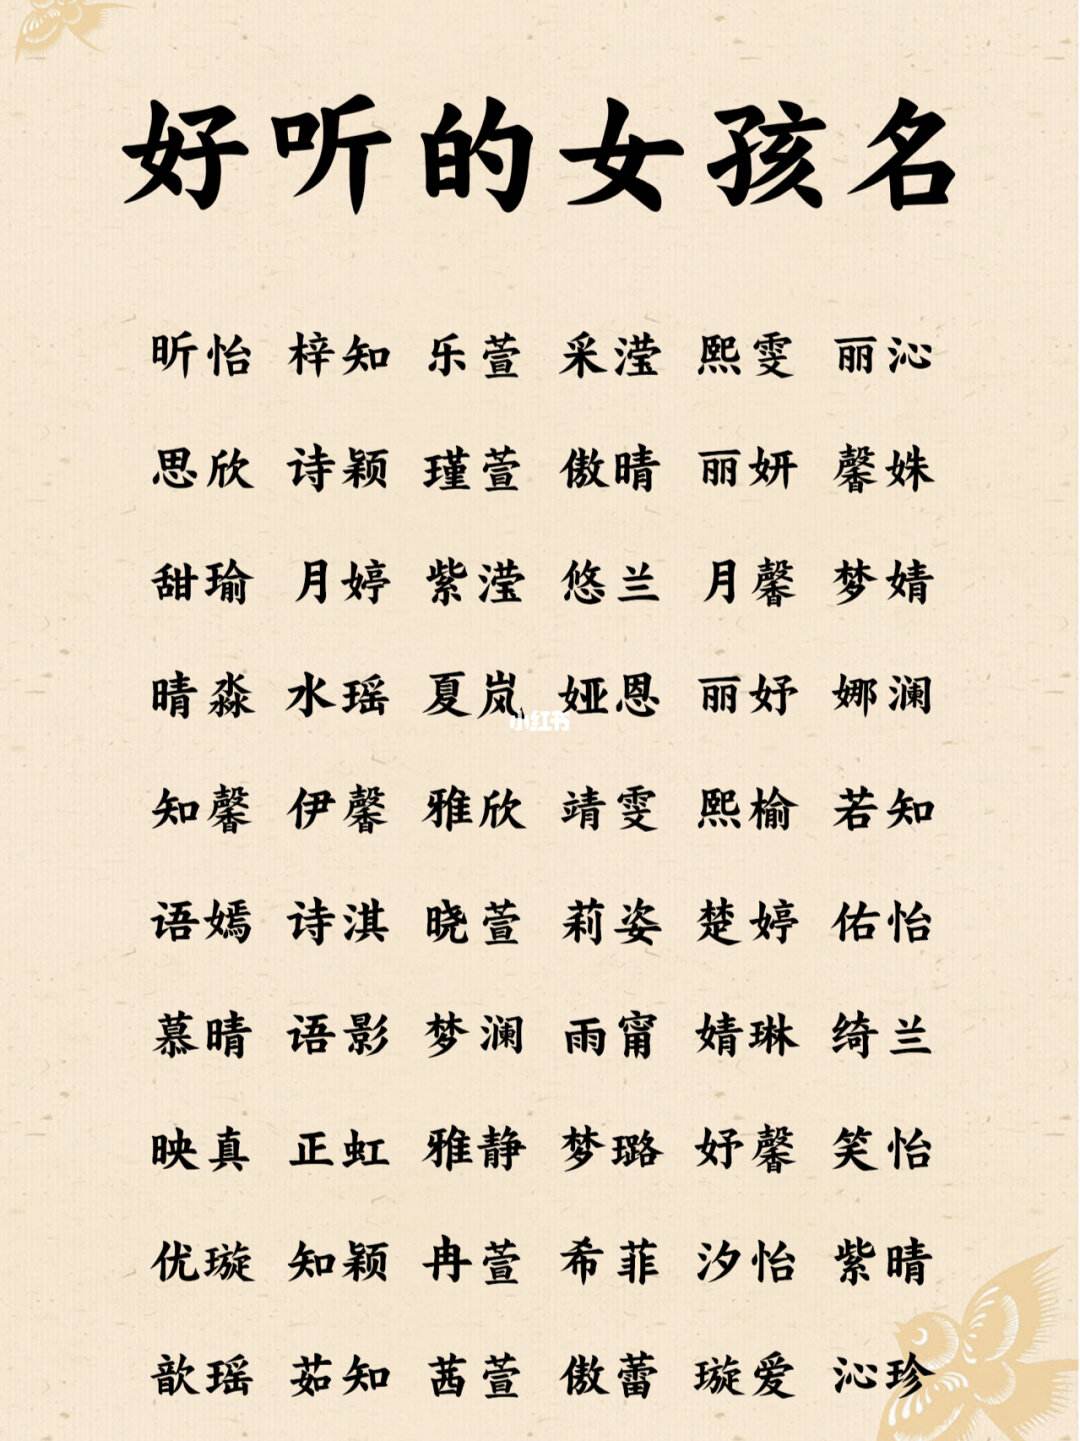 好听的女孩名
昕怡 梓知 乐萱 采滢 熙雯 丽沁
思欣 诗颖 瑾萱 傲晴 丽妍 馨姝
甜瑜 月婷 紫滢 悠兰 月馨 梦婧
晴淼 水瑶 夏岚 娅恩 丽妤 娜澜
小红书
知馨 伊馨 雅欣 靖雯 熙榆 若知
语嫣 诗淇 晓萱 莉姿 楚婷 佑怡
慕晴 语影 梦澜 雨甯 婧琳 绮兰
映真 正虹 雅静 梦璐 妤馨 笑怡
优璇 知颖 冉萱 希菲 汐怡 紫晴
歆瑶 茹知 茜萱 傲蕾 璇爱 沁珍